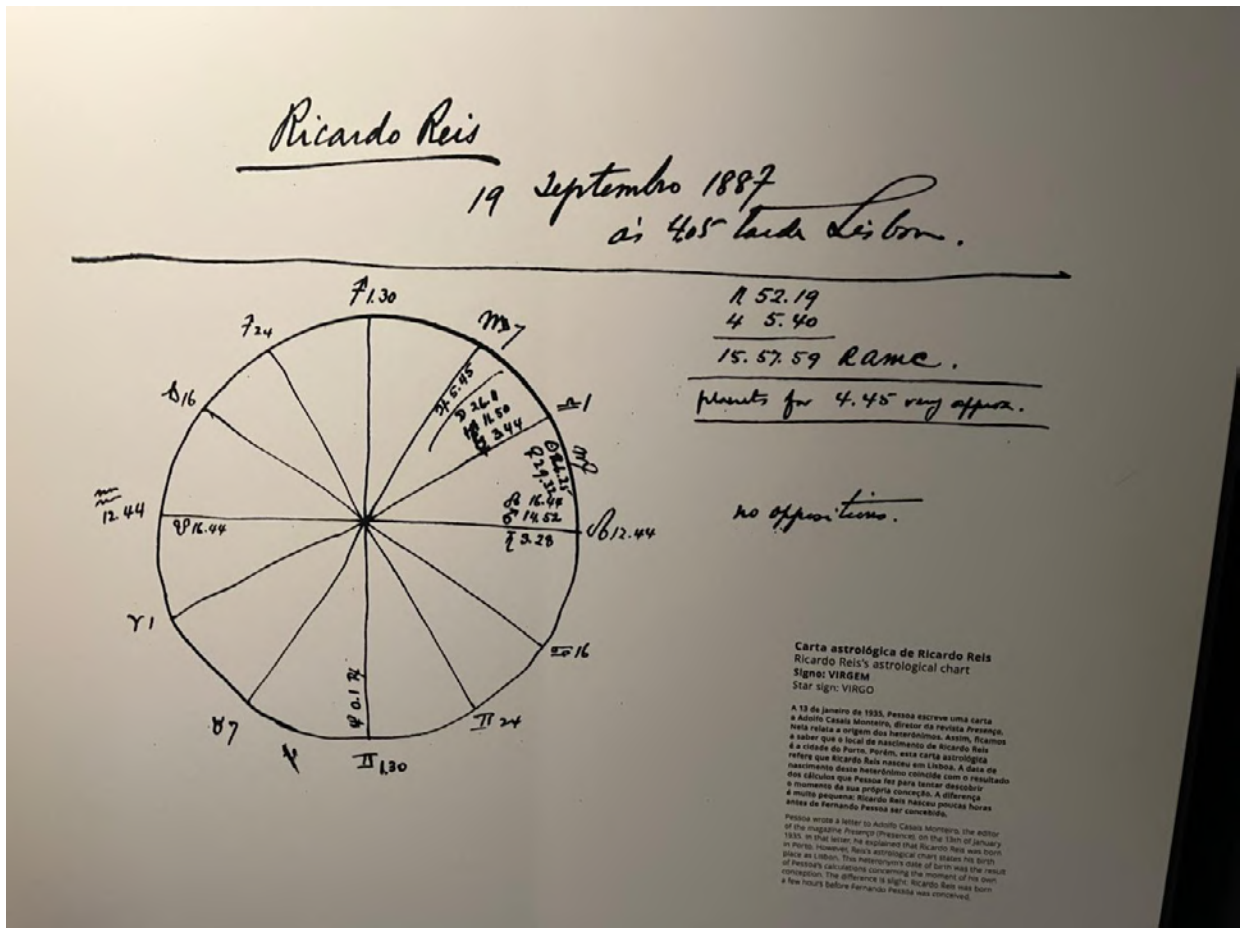 Ricardo Reis
19 Septembro 1887
ás 4.05 tarde Lisboa.
♐ 1.30
♐ 24
♏ 7
♑ 16
♎ 1
♃ 5.45
☽ 26.
11.50
☿ 3.44
♍
♀ 29.32
☉ 26.25
♒
12.44
☋ 16.44
☊ 16.44
♂ 14.52
3.28
♌ 12.44
♈ 1
♋ 16
♉ 7
♆ 0.1
♊ 24
♊ 1.30
52.19
4 5.40
15.57.59 RAMC.
planets for 4.45 very approx.
no oppositions.
Carta astrológica de Ricardo Reis
Ricardo Reis's astrological chart
Signo: VIRGEM
Star sign: VIRGO
A 13 de janeiro de 1935, Pessoa escreve uma carta
a Adolfo Casais Monteiro, diretor da revista Presença.
Nela relata a origem dos heterónimos. Assim, ficamos
a saber que o local de nascimento de Ricardo Reis
é a cidade do Porto. Porém, esta carta astrológica
refere que Ricardo Reis nasceu em Lisboa. A data de
nascimento deste heterónimo coincide com o resultado
dos cálculos que Pessoa fez para tentar descobrir
o momento da sua própria conceção. A diferença
é muito pequena: Ricardo Reis nasceu poucas horas
antes de Fernando Pessoa ser concebido.
Pessoa wrote a letter to Adolfo Casais Monteiro, the editor
of the magazine Presença (Presence), on the 13th of January
1935. In that letter, he explained that Ricardo Reis was born
in Porto. However, Reis's astrological chart states his birth
place as Lisbon. This heteronym's date of birth was the result
of Pessoa's calculations concerning the moment of his own
conception. The difference is slight: Ricardo Reis was born
a few hours before Fernando Pessoa was conceived.